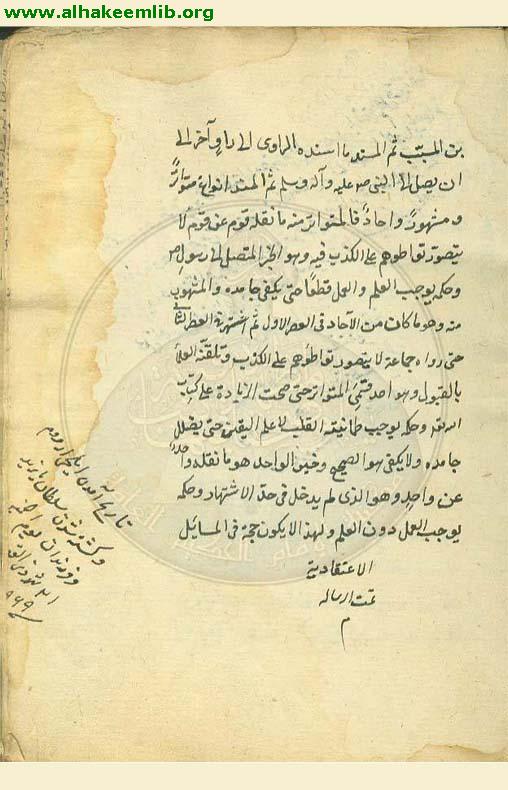 www.alhakeemlib.org
بن المسيّب ثم المسند ما اسنده الراوى الى راو آخر الى
ان يصل الى النبى صه عليه وآله وسلم ثم المسند انواع متواترٌ
ومشهورٌ واحادٌ فالمتواتر منه ما نقله قوم عن قوم لا
يتصور تواطؤهم على الكذب فيه وهو الخبر المتصل الى رسول
وحكمه يوجب العلم والعمل قطعًا حتى يكفر جاحده والمشهور
منه وهو ما كان من الآحاد فى العصر الاول ثم اشتهر فى العصر الثانى
حتى رواه جماعة لا يتصور تواطؤهم على الكذب وتلقته العلماء
بالقبول وهو احد قسمى المتواتر حتى صحت الزيادة على كتاب
الله به وحكمه يوجب طمانينة القلب لا علم اليقين حتى يضلل
جاحده ولا يكفر هو الصحيح وخبر الواحد هو ما نقله واحدٌ
عن واحدٍ وهو الذى لم يدخل فى حدّ الاشتهار وحكمه
يوجب العمل دون العلم ولهذا لا يكون حجة فى المسايل
الاعتقادية
تمت الرساله
م
تاريخ آمدن ايلچى روم
وكشته شدن سلطان بايزيد
وفرزندان يوم
٩٦٩